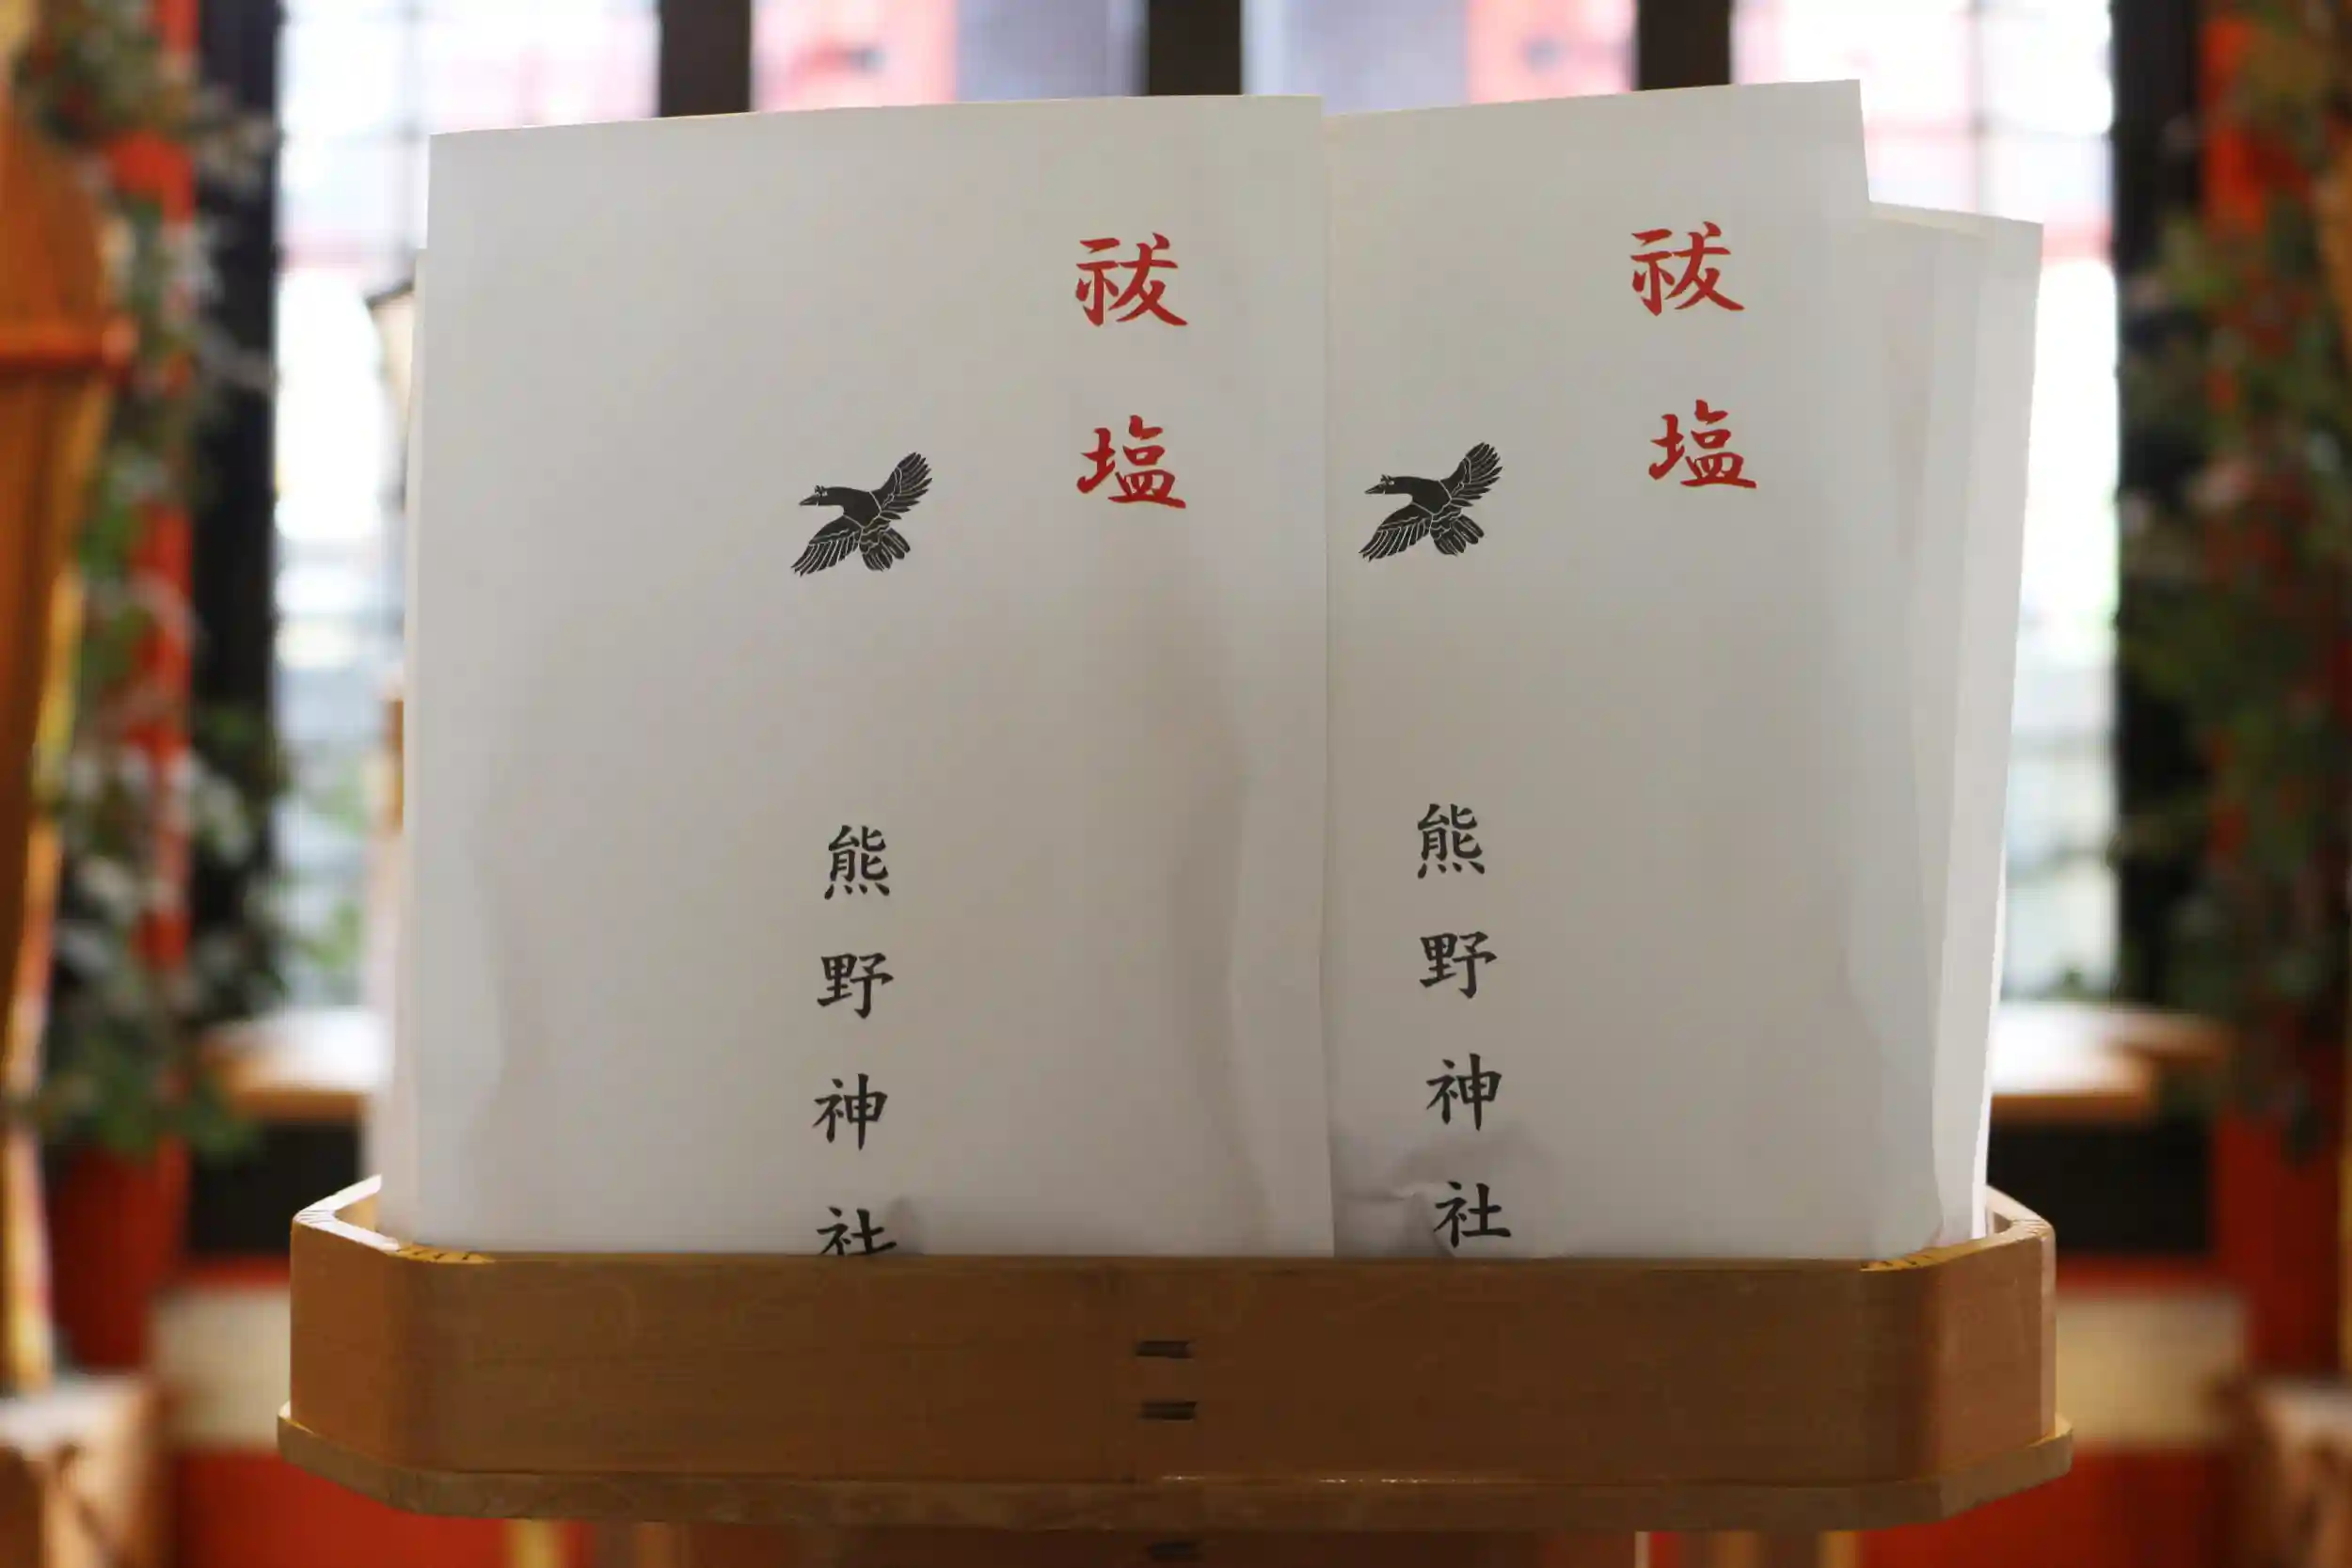 祓塩
熊野神社
祓塩
熊野神社